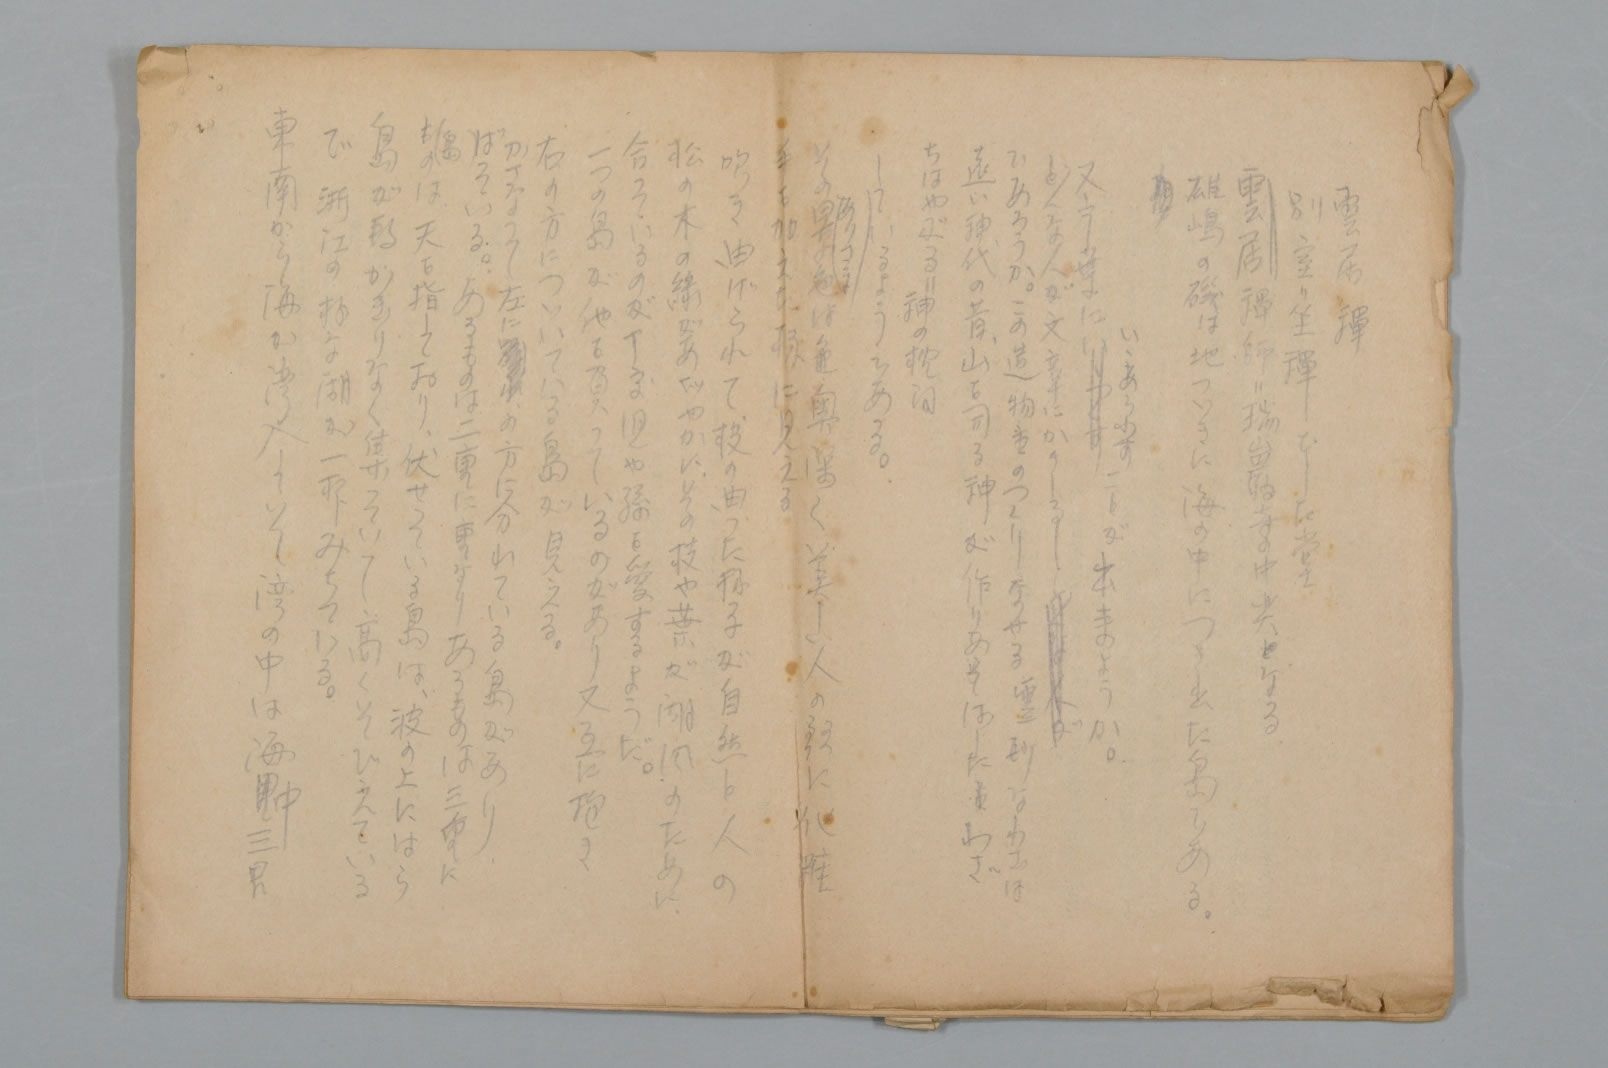 雲居禅
別室リ坐禅しどした堂
雲居禅師=瑞巌寺の中央となる
雄嶋の磯は地つづきに海の中につき出た島である。
いいあらわす
又言葉に ことが出来ようか。
どんな人が文章にかくしるし
であろうか。この造物主のつくりなせる霊刻なわざは
遠い神代の昔、山を司る神が作りあそばした業わざ
ちはやぶる=神の枕詞
しているようである。
ありさま
その は奥深く美しい人の顔に化粧
手を加えた様に見える
吹き曲げられて枝の曲った様子が自然と人の
松の木の緑があざやかに、その枝や葉が潮風のために
合っているのが丁度児や孫を愛するようだ。
一つの島が他を負っているのがあり又互に抱き
右の方につづいている島が見える。
かさなって左に の方に分れている島があり、
ばっている。あるものは二重に重なりあるものは三重に
ものは、天を指しており、伏せっている島は、波の上にはら
島
島が数かぎりなく集っていて、高くそびえている
で浙江の様な潮が一杯みちている。
東南から海が湾入していて、湾の中は 三里
中